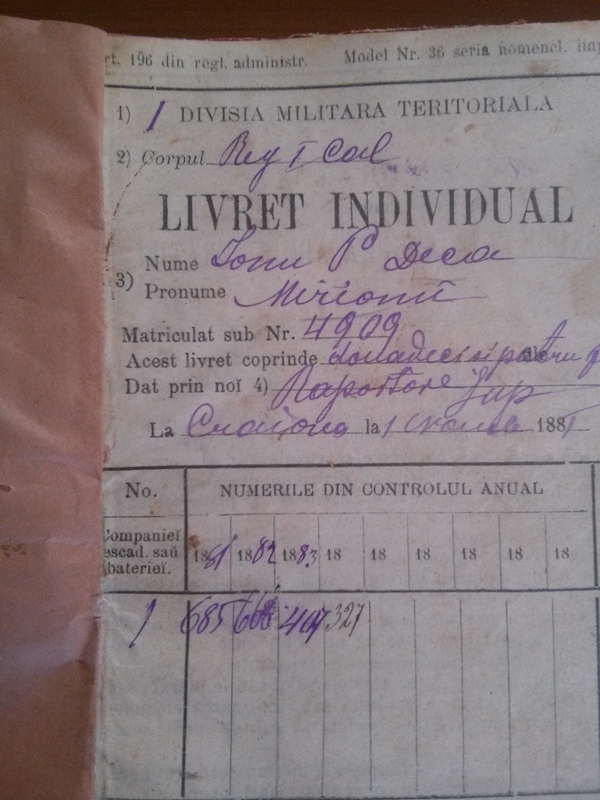 rt. 196 din regl. administr. Model Nr. 36 seria nomencl.
1) 1 DIVISIA MILITARA TERITORIALA
2) Corpul Reg I Cal
LIVRET INDIVIDUAL
3) Nume Ionu P Deca
Pronume
Matriculat sub Nr. 4909
Acest livret coprinde douadeci si patru
Dat prin noĭ 4) Raportore
La Craiova la 1 188
No. NUMERILE DIN CONTROLUL ANUAL
Companieĭ
escad. saŭ
baterieĭ.
1881 1882 1883 18 18 18 18 18 18
1 685 407 327